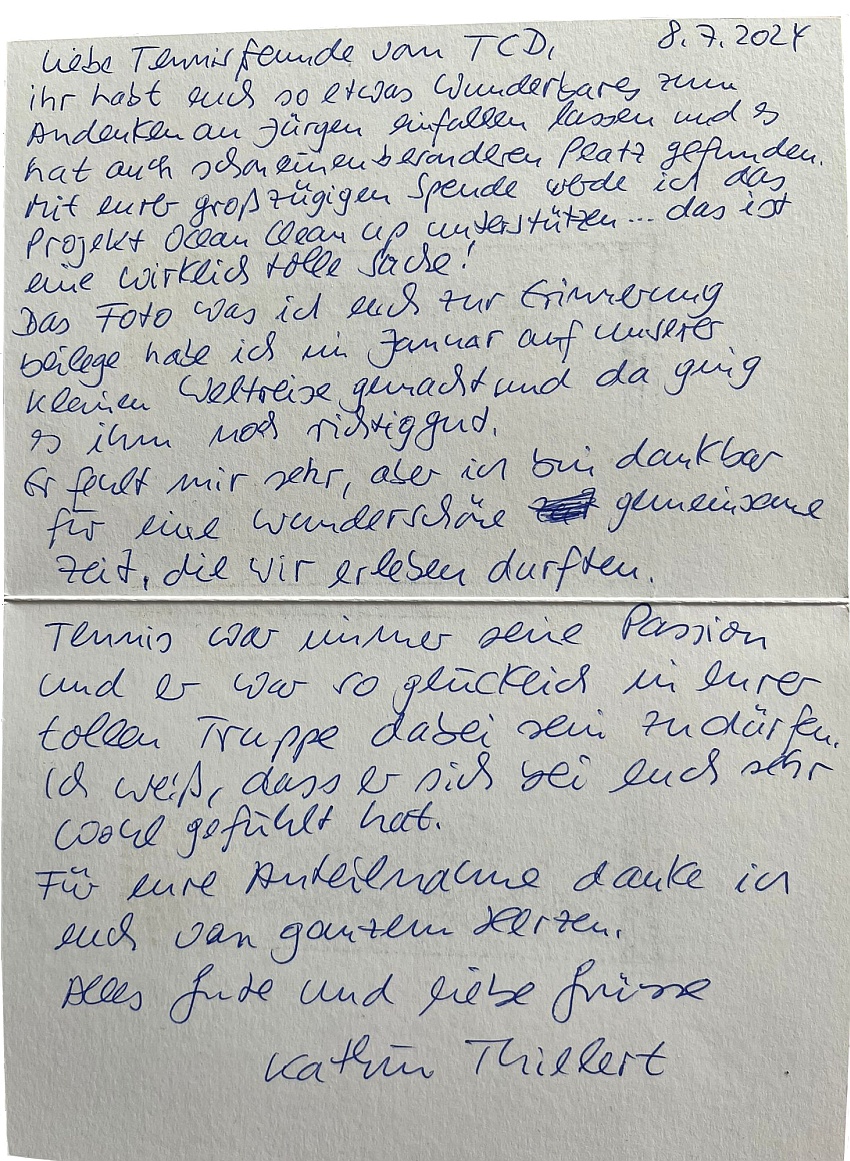 8.7.2024
Liebe Tennisfreunde vom TCD,
ihr habt euch so etwas Wunderbares zum
Andenken an Jürgen einfallen lassen und es
hat auch schon einen besonderen Platz gefunden.
Mit eurer großzügigen Spende werde ich das
Projekt Ocean Clean up unterstützen... das ist
eine wirklich tolle Sache!
Das Foto was ich euch zur Erinnerung
beilege habe ich im Januar auf unserer
kleinen Weltreise gemacht und da ging
es ihm noch richtig gut.
Er fehlt mir sehr, aber ich bin dankbar
für eine wunderschöne gemeinsame
Zeit, die wir erleben durften.
Tennis war immer seine Passion
und er war so glücklich in eurer
tollen Truppe dabei sein zu dürfen.
Ich weiß, dass er sich bei euch sehr
wohl gefühlt hat.
Für eure Anteilnahme danke ich
euch von ganzem Herzen.
Alles Gute und liebe Grüsse
Kathrin Thielert